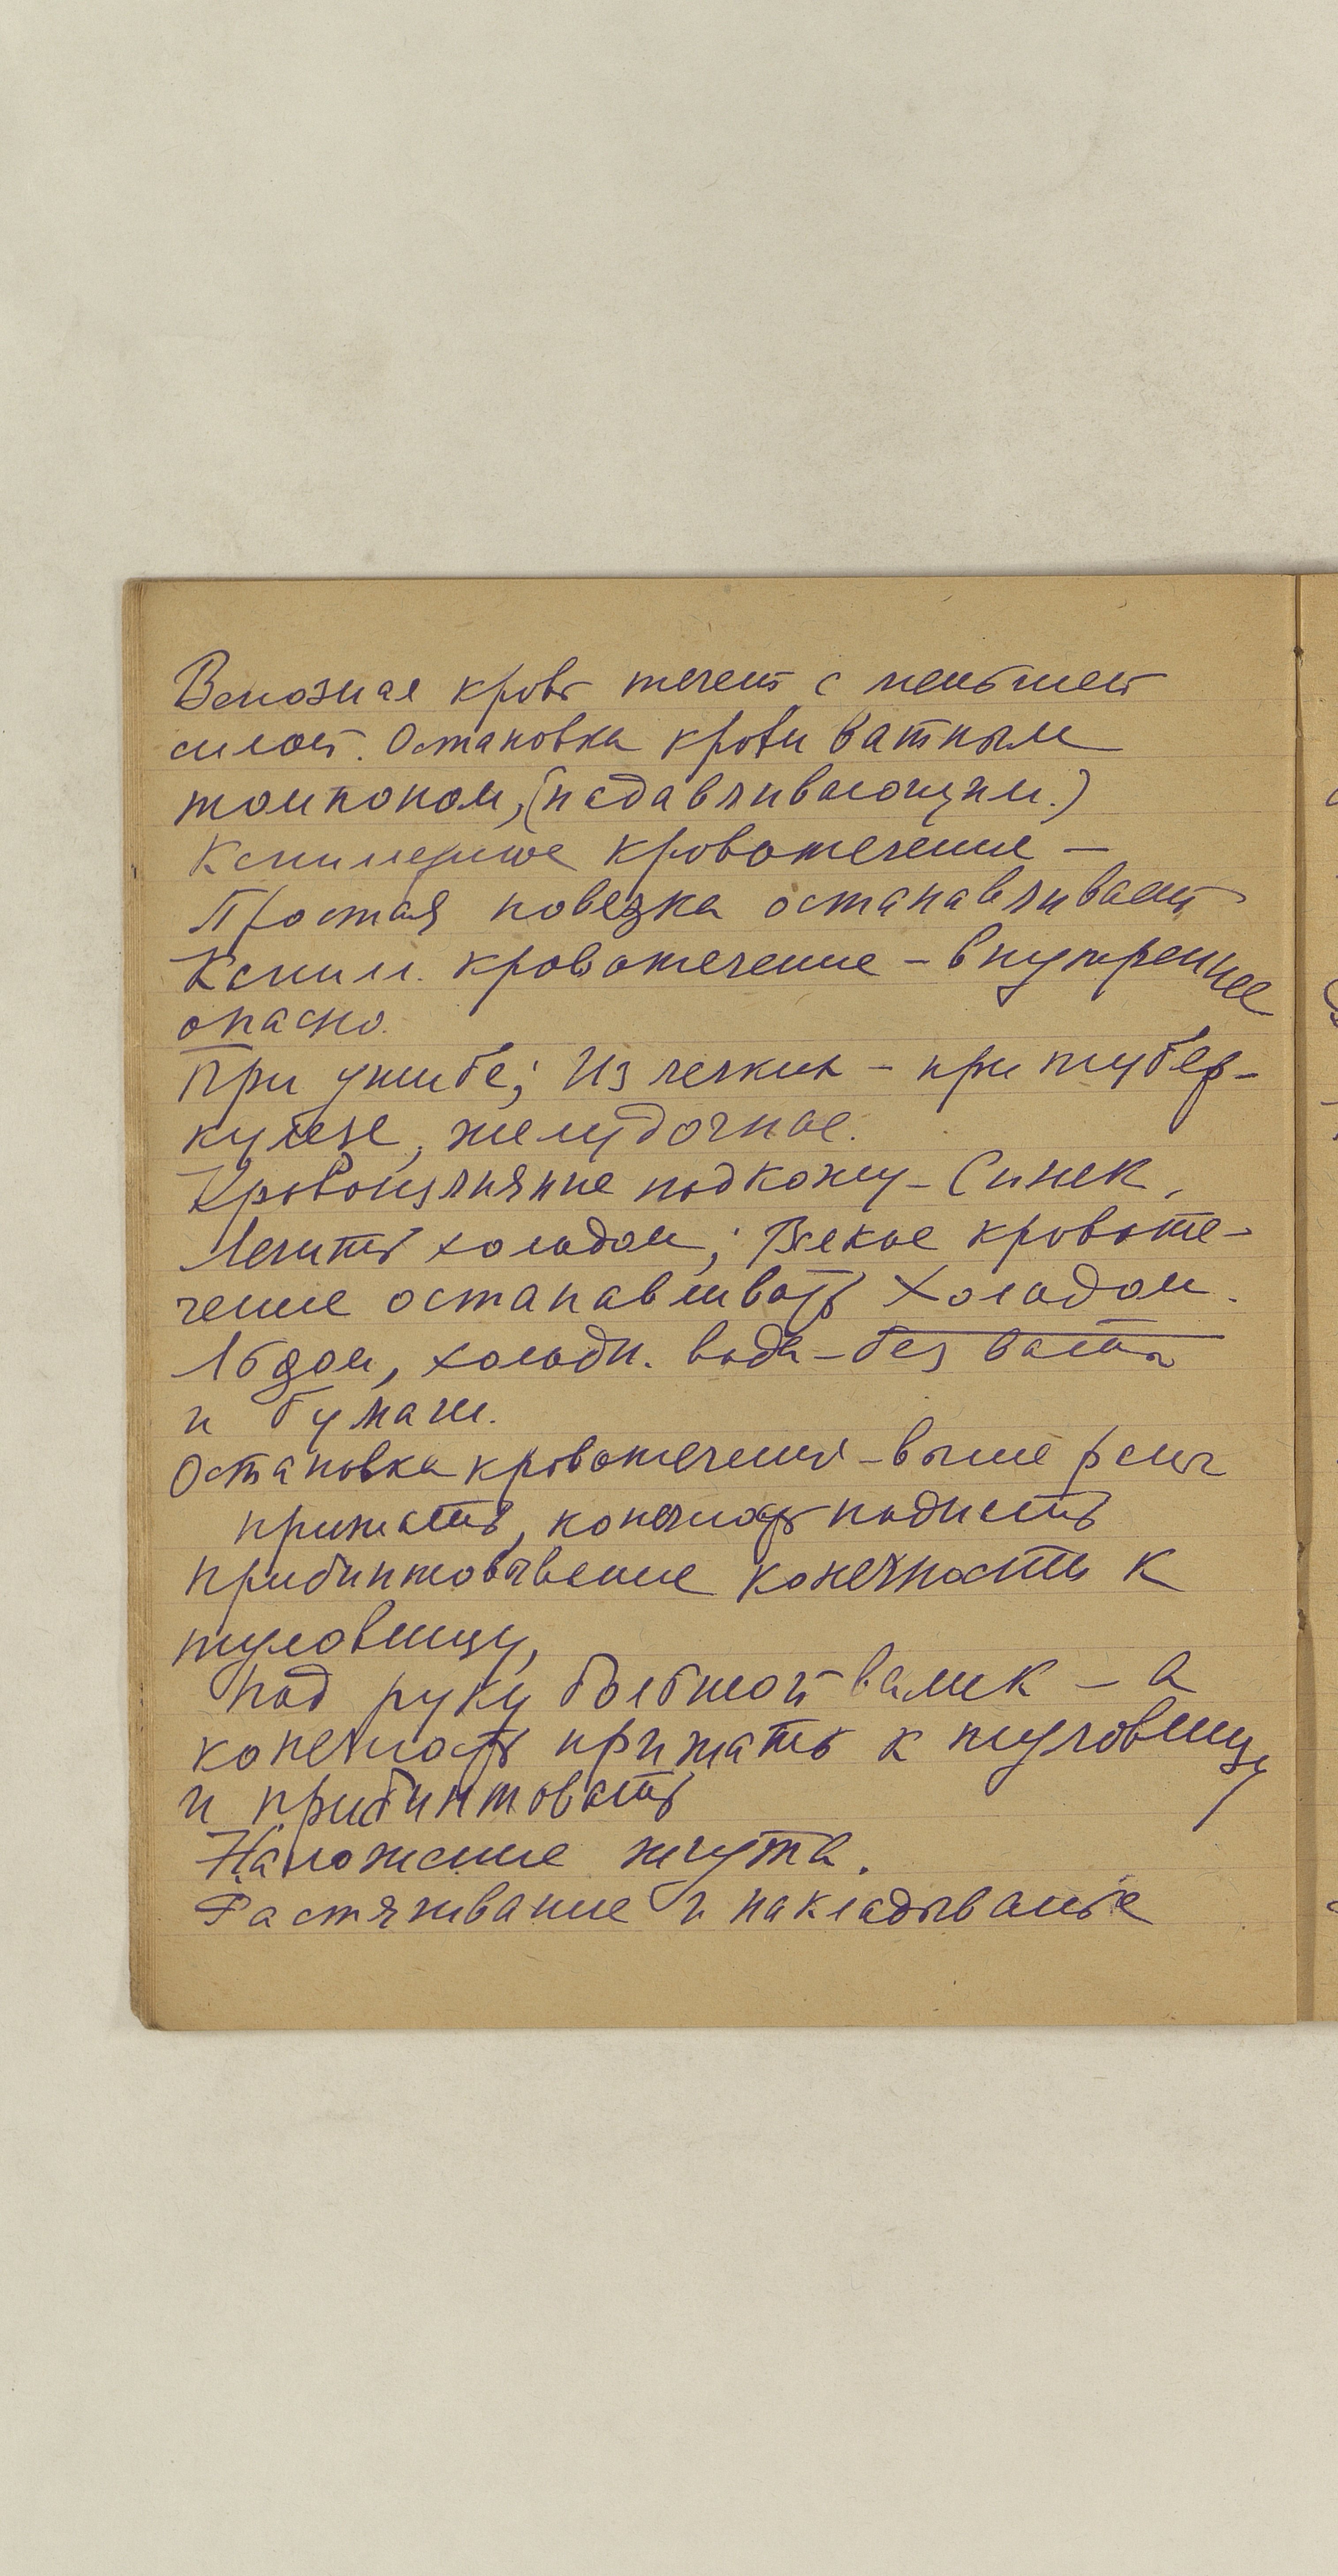 Венозная кровь течет с меньшей
силой. Остановка крови ватным
томпоном, (надавливающим.)
Капилерное кровотечение —
Простая повезка останавливает
Капил. кровотечение – внутреннее
опасно.
При ушибе; Из легких – при тубер-
кулезе, желудочное.
Кровоизлияние под кожу – Синек,
Лечить холодом; Всякое кровоте-
чение останавливать холодом.
Льдом, холодн. вода – без ваты
и бумаги.
Остановка кровотечения – выше раны
прижать, конечность поднять
прибинтовывание конечность к
туловищу,
Под руку большой валик – а
конечность прижать к туловищу
и прибинтовать
Наложение жгута.
Растягивание и накладыванье